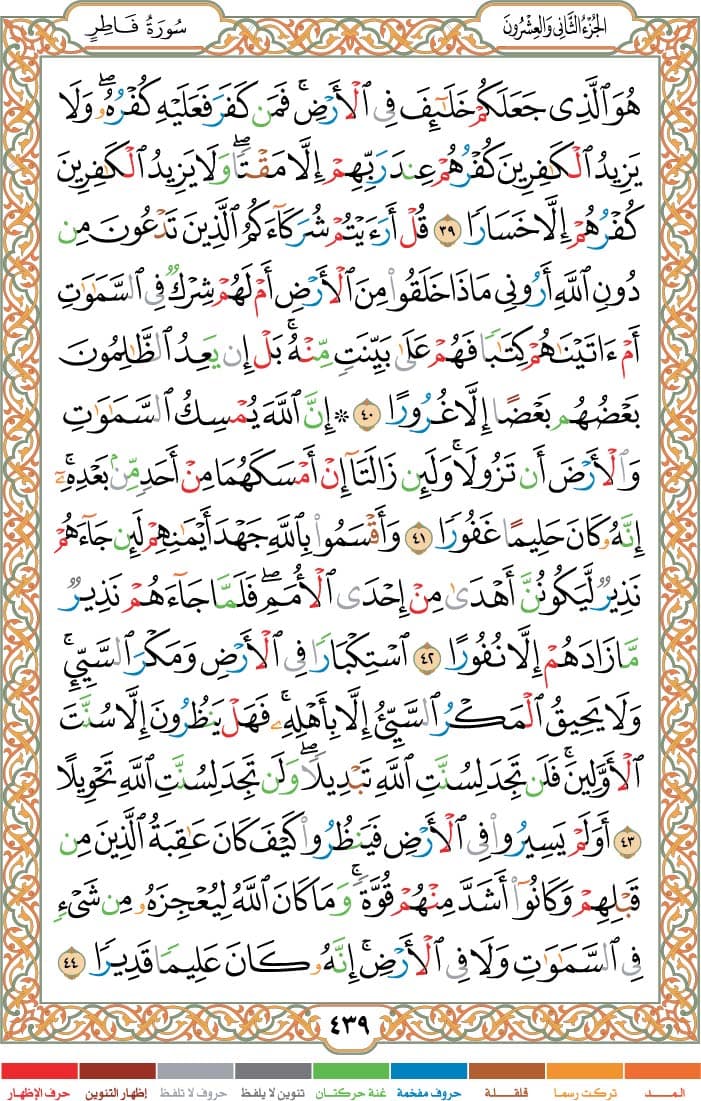 سُورَةُ فَاطِرٍ
الجُزْءُ الثَّانِي وَالعِشْرُونَ
هُوَ ٱلَّذِي جَعَلَكُمْ خَلَٰٓئِفَ فِي ٱلْأَرْضِۚ فَمَن كَفَرَ فَعَلَيْهِ كُفْرُهُۥۖ وَلَا
يَزِيدُ ٱلْكَٰفِرِينَ كُفْرُهُمْ عِندَ رَبِّهِمْ إِلَّا مَقْتًاۖ وَلَا يَزِيدُ ٱلْكَٰفِرِينَ
كُفْرُهُمْ إِلَّا خَسَارًا ٣٩ قُلْ أَرَءَيْتُمْ شُرَكَآءَكُمُ ٱلَّذِينَ تَدْعُونَ مِن
دُونِ ٱللَّهِ أَرُونِي مَاذَا خَلَقُوا۟ مِنَ ٱلْأَرْضِ أَمْ لَهُمْ شِرْكٌ فِي ٱلسَّمَٰوَٰتِ
أَمْ ءَاتَيْنَٰهُمْ كِتَٰبًا فَهُمْ عَلَىٰ بَيِّنَتٍ مِّنْهُۚ بَلْ إِن يَعِدُ ٱلظَّٰلِمُونَ
بَعْضُهُم بَعْضًا إِلَّا غُرُورًا ٤٠ ۞ إِنَّ ٱللَّهَ يُمْسِكُ ٱلسَّمَٰوَٰتِ
وَٱلْأَرْضَ أَن تَزُولَاۚ وَلَئِن زَالَتَآ إِنْ أَمْسَكَهُمَا مِنْ أَحَدٍ مِّنۢ بَعْدِهِۦٓۚ
إِنَّهُۥ كَانَ حَلِيمًا غَفُورًا ٤١ وَأَقْسَمُوا۟ بِٱللَّهِ جَهْدَ أَيْمَٰنِهِمْ لَئِن جَآءَهُمْ
نَذِيرٌ لَّيَكُونُنَّ أَهْدَىٰ مِنْ إِحْدَى ٱلْأُمَمِۖ فَلَمَّا جَآءَهُمْ نَذِيرٌ
مَّا زَادَهُمْ إِلَّا نُفُورًا ٤٢ ٱسْتِكْبَارًا فِي ٱلْأَرْضِ وَمَكْرَ ٱلسَّيِّئِۚ
وَلَا يَحِيقُ ٱلْمَكْرُ ٱلسَّيِّئُ إِلَّا بِأَهْلِهِۦۚ فَهَلْ يَنظُرُونَ إِلَّا سُنَّتَ
ٱلْأَوَّلِينَۚ فَلَن تَجِدَ لِسُنَّتِ ٱللَّهِ تَبْدِيلًاۖ وَلَن تَجِدَ لِسُنَّتِ ٱللَّهِ تَحْوِيلًا
٤٣ أَوَلَمْ يَسِيرُوا۟ فِي ٱلْأَرْضِ فَيَنظُرُوا۟ كَيْفَ كَانَ عَٰقِبَةُ ٱلَّذِينَ مِن
قَبْلِهِمْ وَكَانُوٓا۟ أَشَدَّ مِنْهُمْ قُوَّةًۚ وَمَا كَانَ ٱللَّهُ لِيُعْجِزَهُۥ مِن شَيْءٍ
فِي ٱلسَّمَٰوَٰتِ وَلَا فِي ٱلْأَرْضِۚ إِنَّهُۥ كَانَ عَلِيمًا قَدِيرًا ٤٤
٤٣٩
المـــد تركت رسما قلقلة حروف مفخمة غنة حركتان تنوين لا يلفظ حروف لا تلفظ إظهار التنوين حرف الإظهار